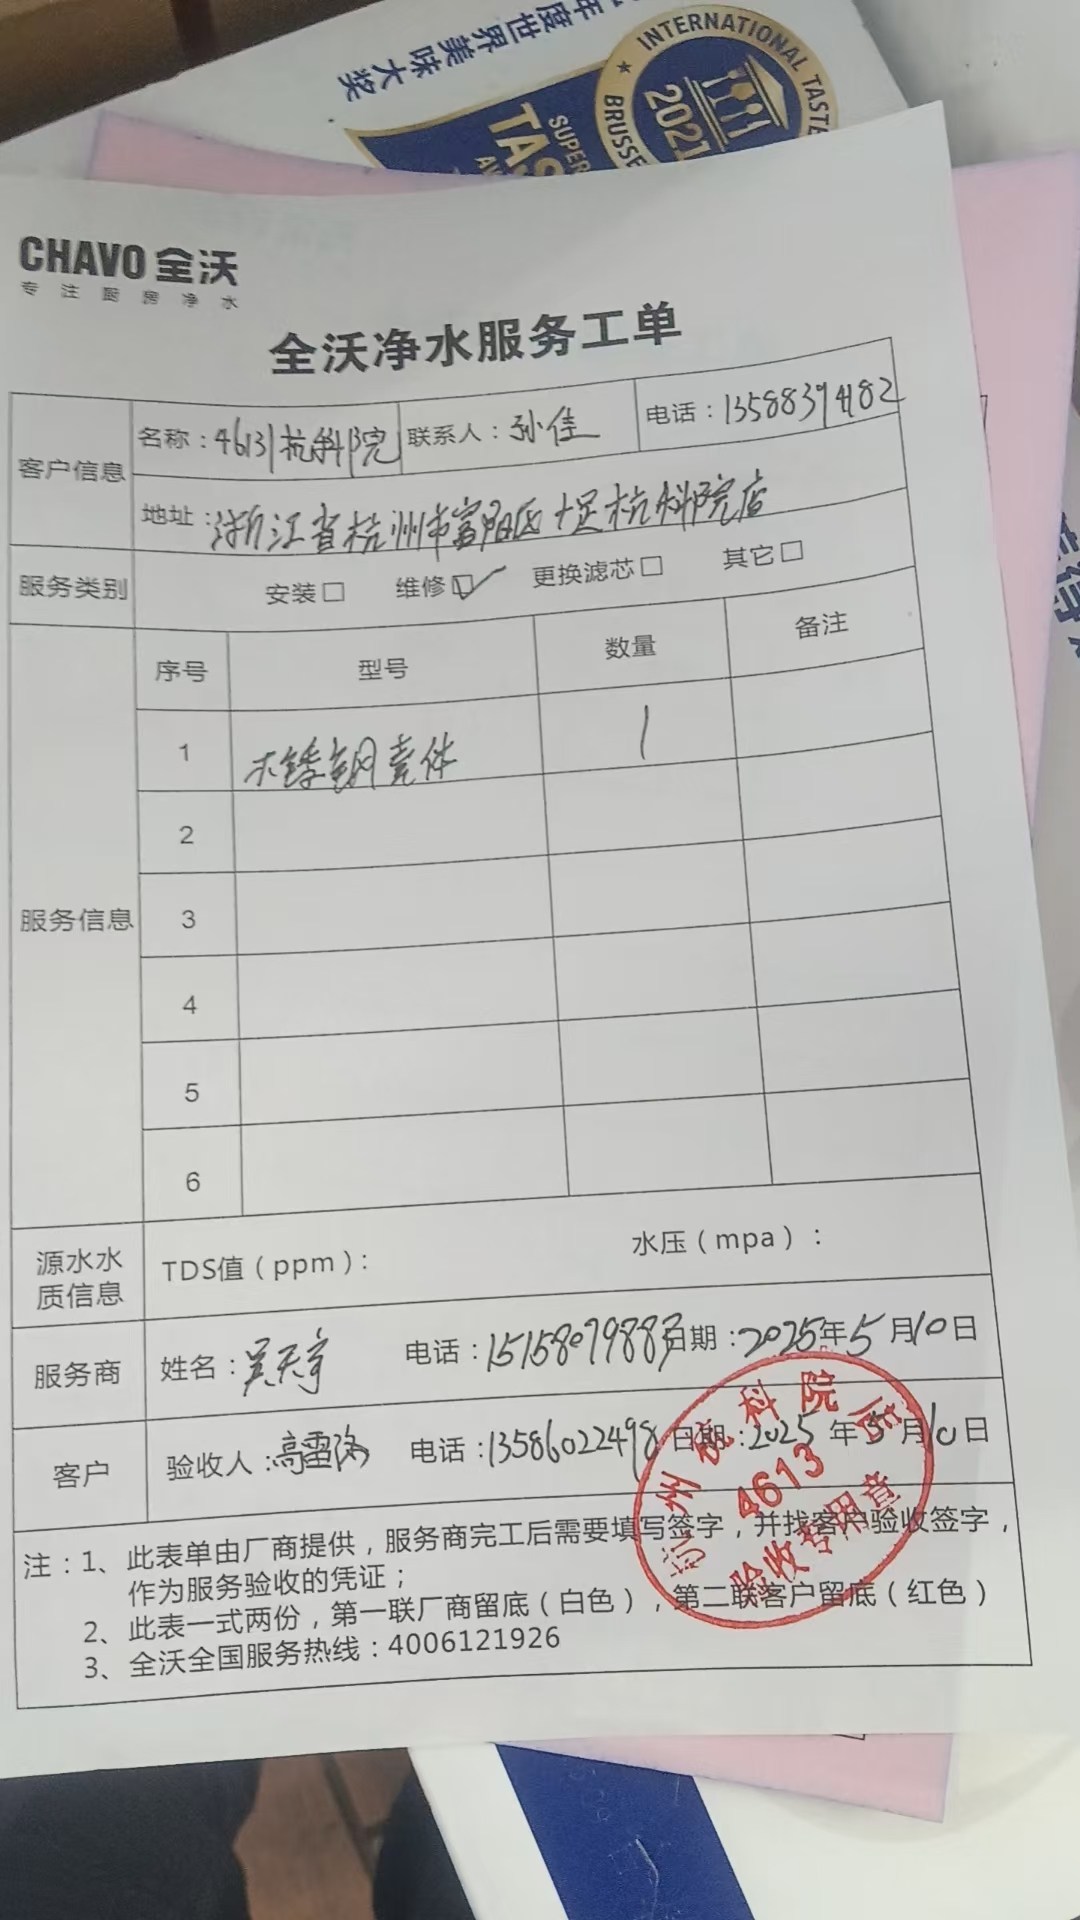 年度世界美味大奖
INTERNATIONAL TASTE
BRUSSE
2021
SUPER
TAS
CHAVO 全沃
专注厨房净水
全沃净水服务工单
客户信息
名称：4613杭科院 联系人：孙佳 电话：13588394182
地址：浙江省杭州市富阳区十足杭科院店
服务类别 安装□ 维修☑ 更换滤芯□ 其它□
服务信息
序号 型号 数量 备注
1 不锈钢壳体 1
2
3
4
5
6
源水水质信息
TDS值（ppm）： 水压（mpa）：
服务商 姓名：吴天宇 电话：15158079883 日期：2025年5月10日
客户 验收人：高雷 电话：13586022498 日期：2025年5月10日
杭州杭科院店
4613
验收专用章
注：1、此表单由厂商提供，服务商完工后需要填写签字，并找客户验收签字，
作为服务验收的凭证；
2、此表一式两份，第一联厂商留底（白色），第二联客户留底（红色）
3、全沃全国服务热线：4006121926